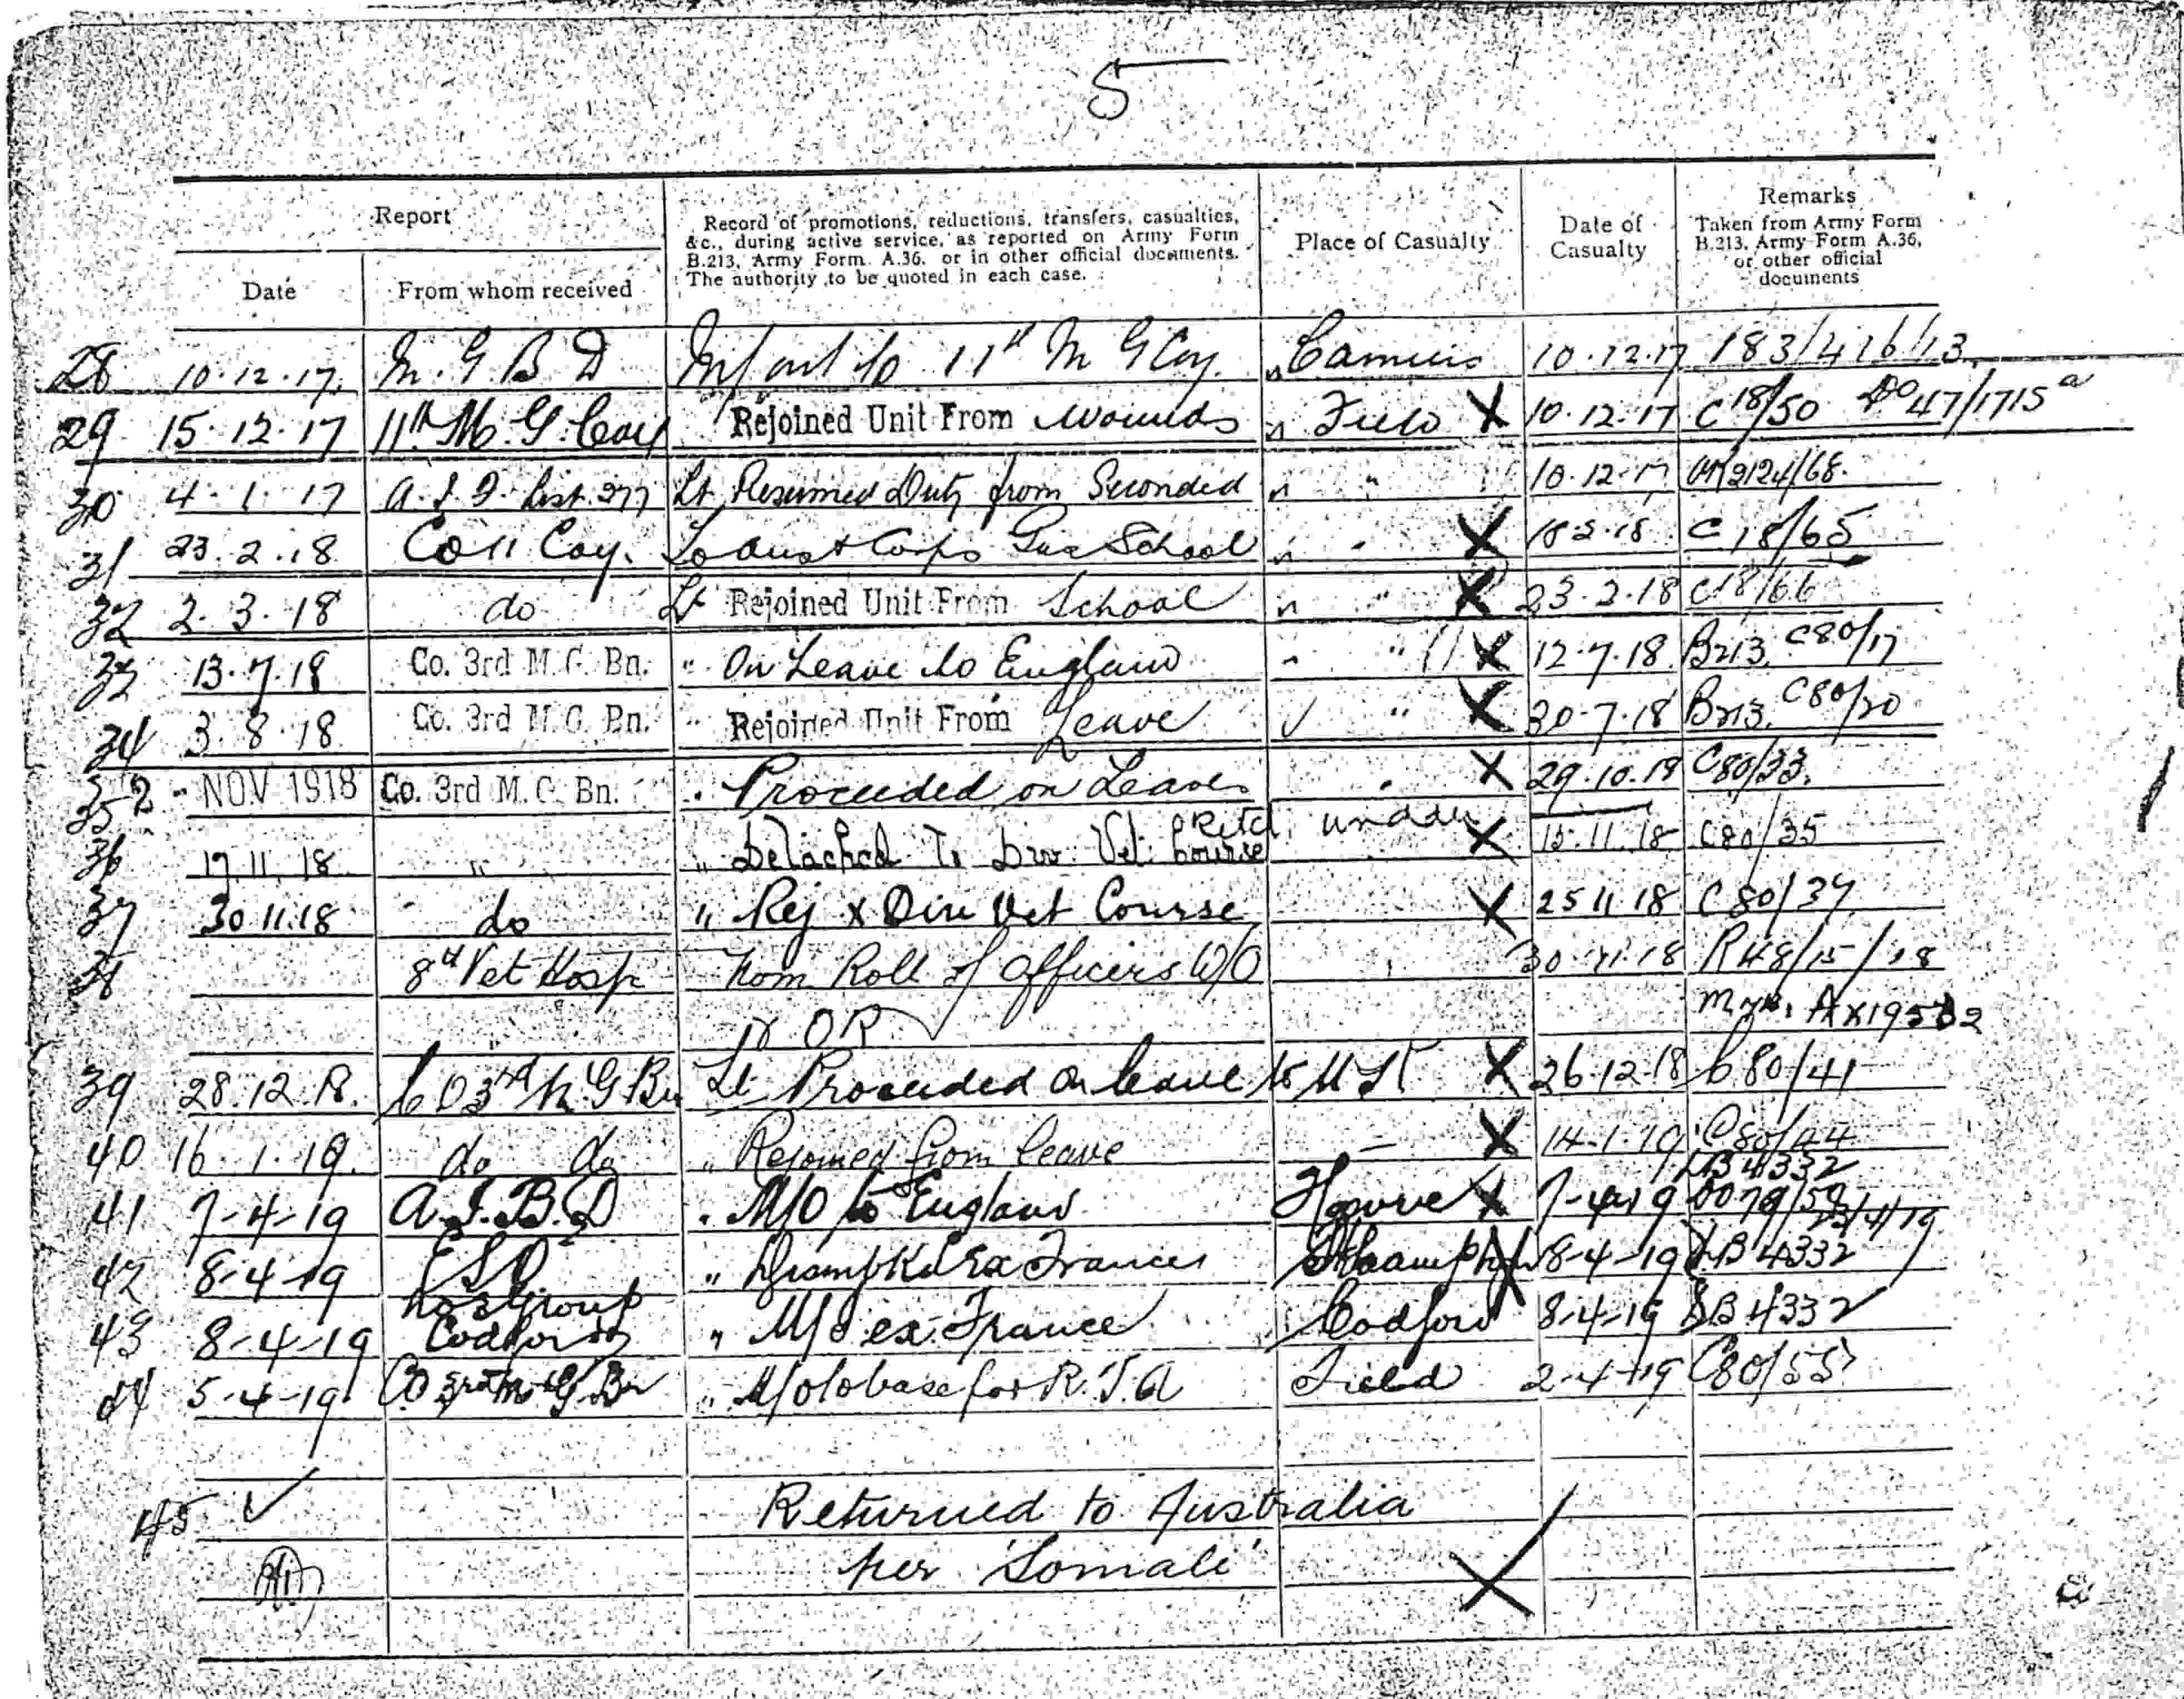 5
Report
Record of promotions, reductions, transfers, casualties,
&c., during active service, as reported on Army Form
B.213, Army Form A.36, or in other official documents.
The authority to be quoted in each case.
Place of Casualty
Date of
Casualty
Remarks
Taken from Army Form
B.213, Army Form A.36,
or other official
documents
Date
From whom received
28 10.12.17. M.G.B.D to 11th M G Coy. 10.12.17
29 15.12.17 11th M.G. Coy Rejoined Unit From wounds " Field X 10.12.17 C18/50 Do 47/1715a
30 4.1.17 A.I.F. List 277 Lt Resumed Duty from Seconded " " 10.12.17
31 23.2.18 Co 11 Coy. To Aust Corps Gas School " " X C18/65
32 2.3.18 do Lt Rejoined Unit From School " " X 23.2.18 C18/66
13.7.18 Co. 3rd M.G. Bn. " On Leave to England " " X 12.7.18 B213. C80/17
34 3.8.18 Co. 3rd M.G. Bn. " Rejoined Unit From Leave " X 30.7.18 B213. C80/20
35 2 - NOV 1918 Co. 3rd M.G. Bn. " Proceeded on Leave " X 29.10.18 C80/33.
36 17.11.18 " " Detached To Div. Vet. Course X 15.11.18 C80/35
37 30.11.18 do " Rej x Div Vet Course X 25 11 18 C80/37
38 8th Vet Hosp Nom Roll of Officers W/O 30.11.18 R48/15/18
OR
39 28.12.18. CO 3rd M.G Bn Lt Proceeded on leave to X 26.12.18 C80/41
40 16.1.19. do do " Rejoined from leave - X 14.1.19 C80/44
DB 4332
41 7-4-19 A.I.B.D " M/O to England Havre X 7-4-19
42 8-4-19 " Ex France 8-4-19 DB 4332
No 3 Group
43 8-4-19 Codford " M/I ex France Codford 8-4-19 DB 4332
44 5-4-19 CO 3rd M G Bn " M/O to base for R.T.A Field 2-4-19 C80/55
45 Returned to Australia
per 'Somali'